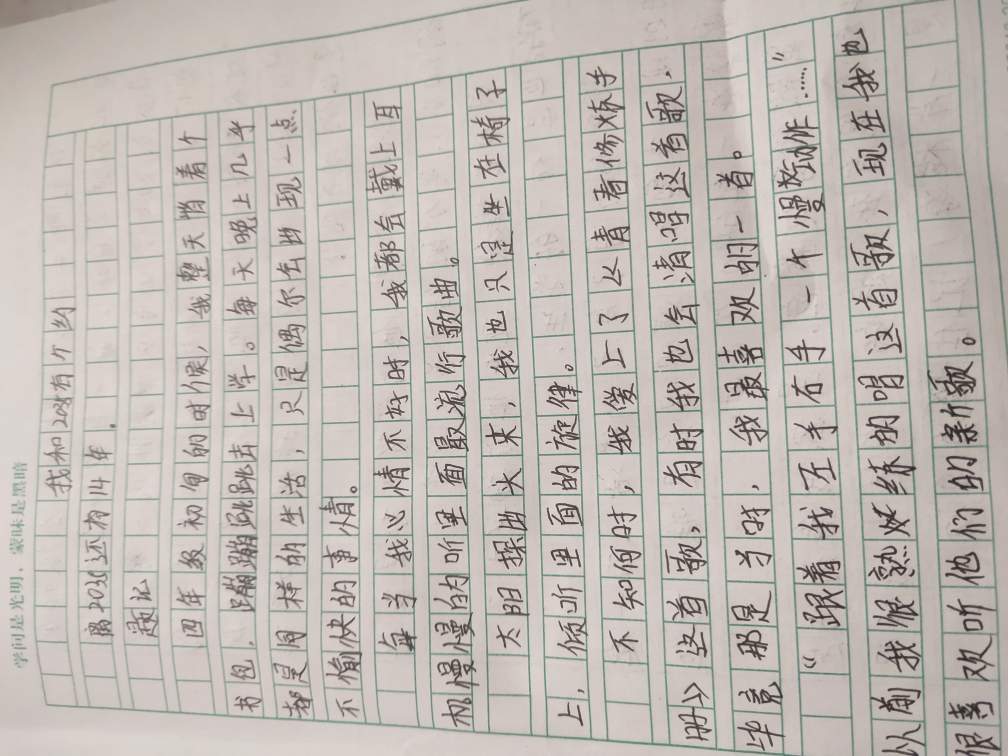 学问是光明，蒙昧是黑暗
我和2028有个约
离2030还有14年.
题记
四年级初旬的时候，我整天背着个
书包，蹦蹦跳跳去上学。每天晚上几乎
都是同样的生活，只是偶尔会出现一点
不愉快的事情。
每当我心情不好时，我都会戴上耳
机慢慢的听里面最流行歌曲。
太阳探出头来，我也只是坐在椅子
上，倾听里面的旋律。
不知何时，我爱上了《青春修炼手
册》这首歌，有时我也会清唱这首歌.
毕竟那是当时，我最喜欢的一首。
“跟着我左手右手一个慢动作……”
从前我很熟好练的唱这首歌，现在我也
很喜欢听他们的新歌。